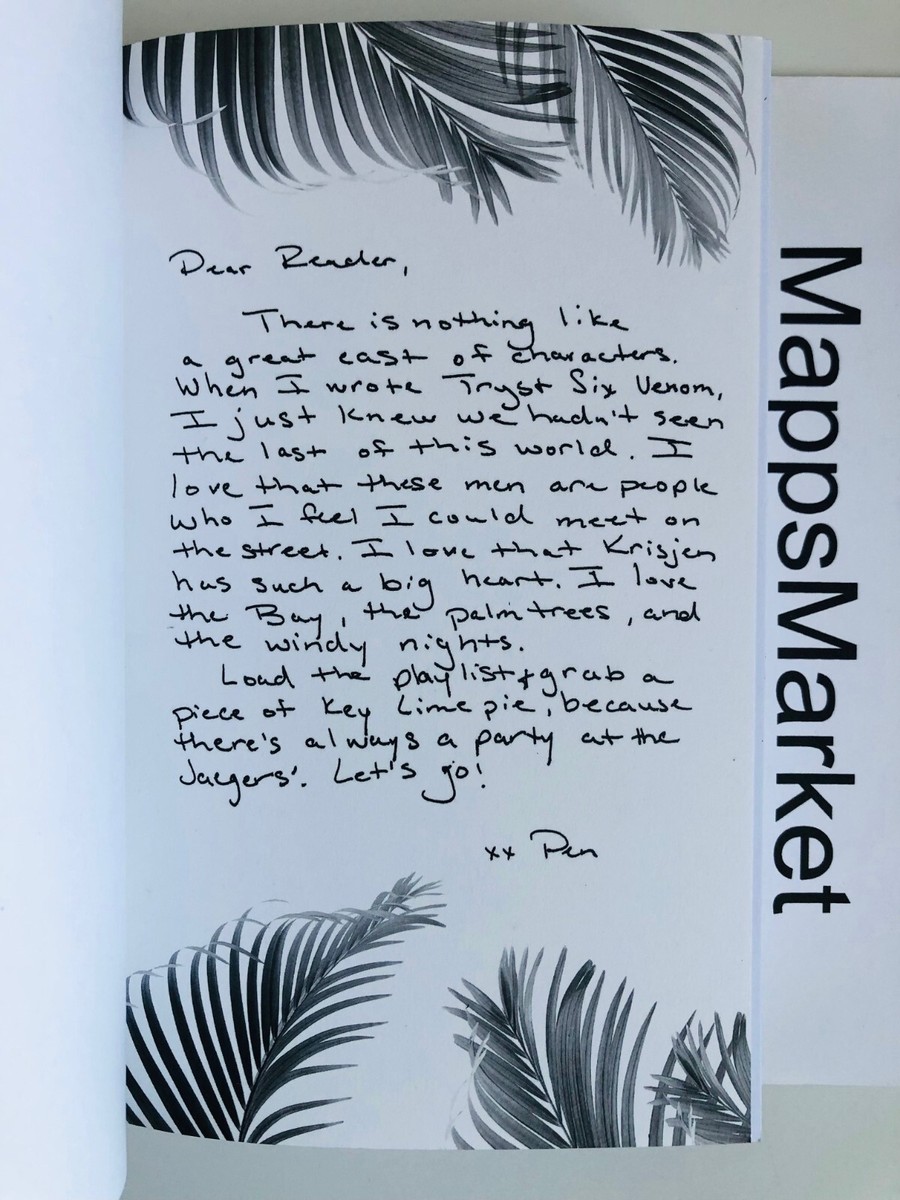 Dear Reader,
There is nothing like
a great cast of characters.
When I wrote Tryst Six Venom,
I just knew we hadn't seen
the last of this world. I
love that these men are people
who I feel I could meet on
the street. I love that Krisjen
has such a big heart. I love
the Bay, the palm trees, and
the windy nights.
Load the playlist & grab a
piece of Key Lime pie, because
there's always a party at the
Jaegers'. Let's go!
xx Pen
MappsMarket